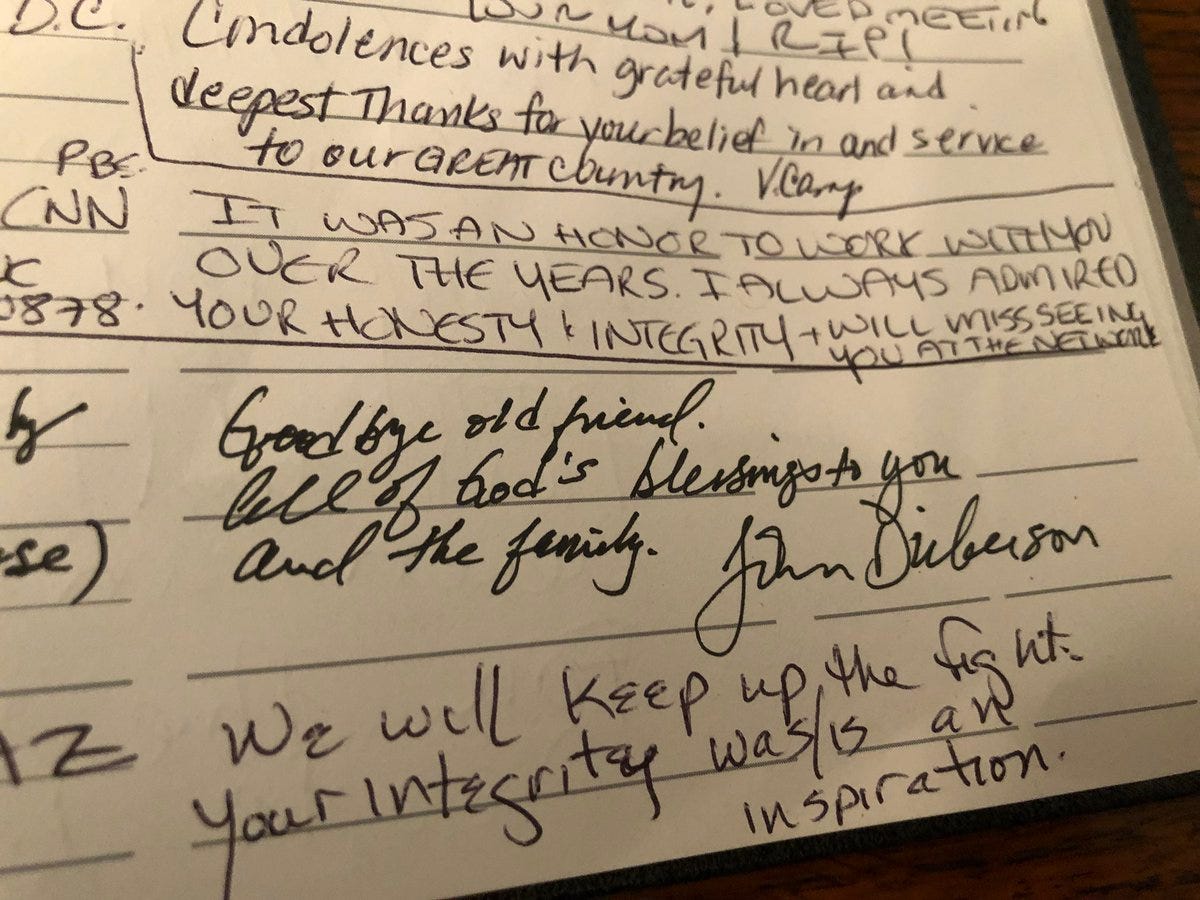 LOVED MEETING
D.C. YOUR MOM! RIP!
Condolences with grateful heart and
deepest Thanks for your belief in and service
PBS to our GREAT Country. V. Camp
CNN IT WAS AN HONOR TO WORK WITH YOU
OVER THE YEARS. I ALWAYS ADMIRED
0878. YOUR HONESTY & INTEGRITY + WILL MISS SEEING
YOU AT THE NETWORK
by Goodbye old friend.
All of God's blessings to you
se) and the family. John Dickerson
We will keep up the fight.
AZ Your integritey was/is an
inspiration.